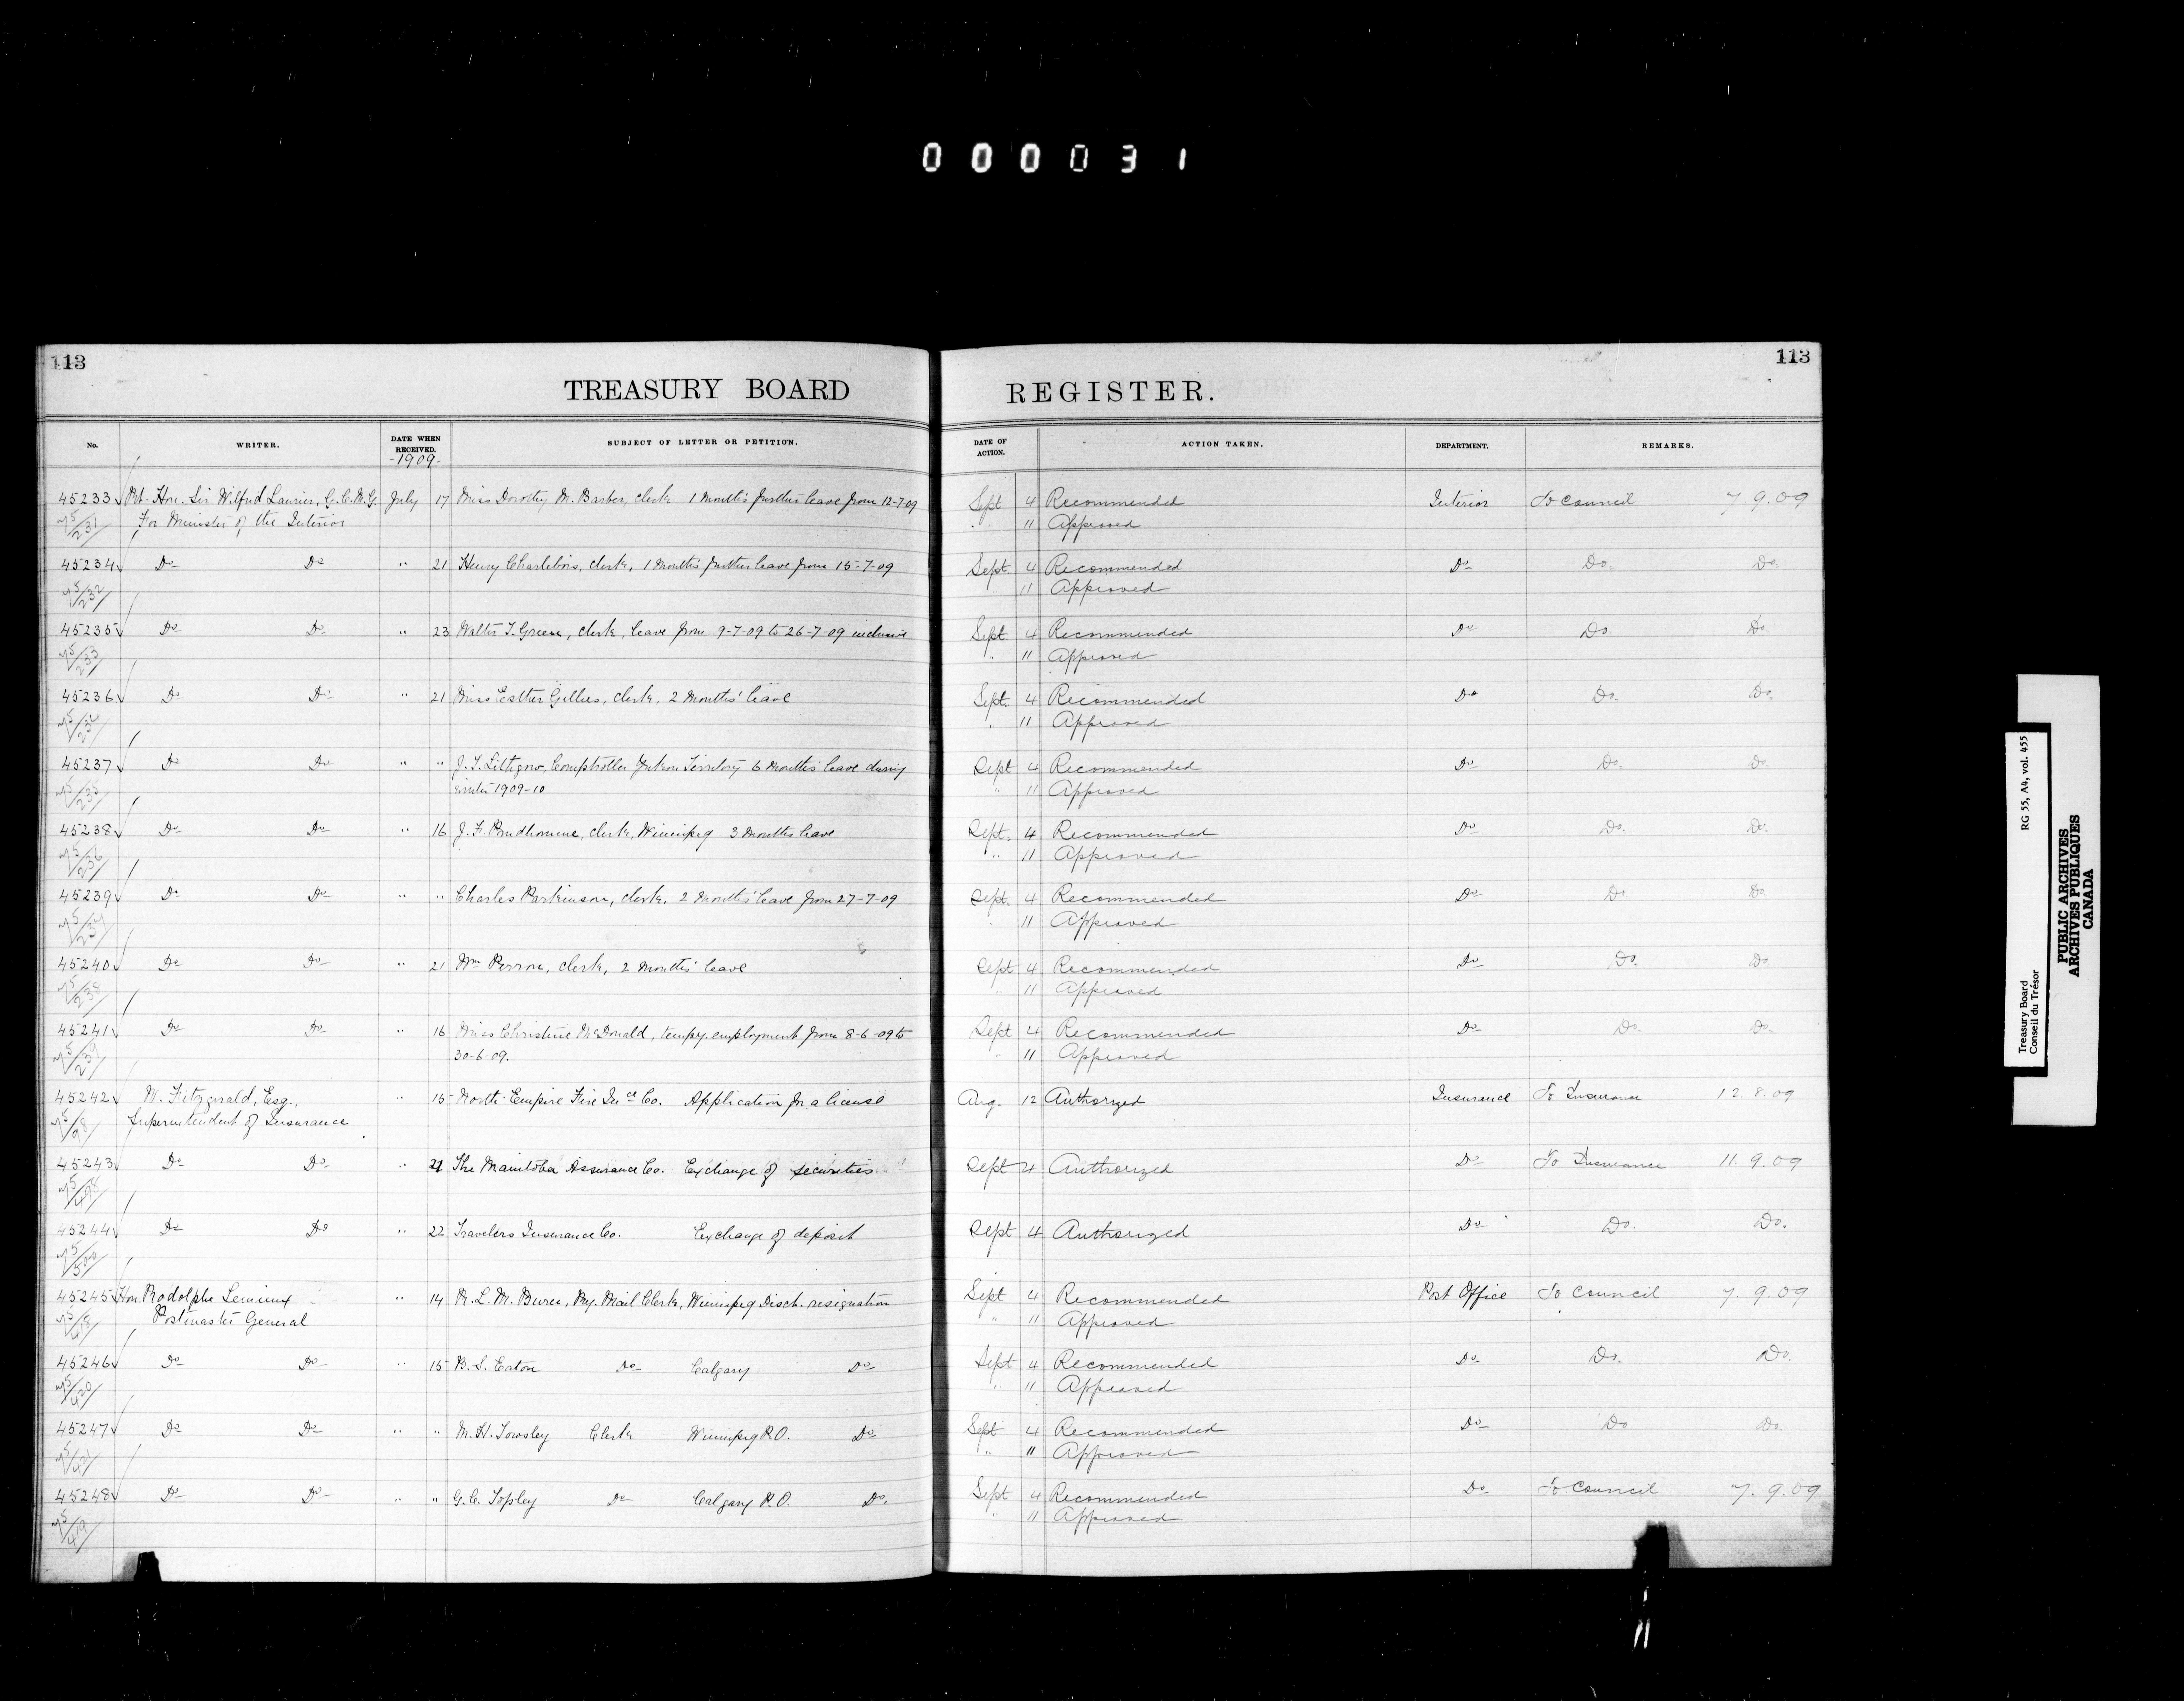 000031
113
113
TREASURY BOARD REGISTER.
No. WRITER. DATE WHEN RECEIVED. SUBJECT OF LETTER OR PETITION. DATE OF ACTION. ACTION TAKEN. DEPARTMENT. REMARKS.
-1909-
45233 Rt. Hon. Sir Wilfrid Laurier, G.C.M.G. July 17 Miss Dorothy M. Barber, clerk 1 month's further leave from 12-7-09 Sept 4 Recommended Interior To Council 7.9.09
75/231 For Minister of the Interior 11 Approved
45234 Do Do " 21 Henry Charlebois, clerk, 1 month's further leave from 15-7-09 Sept. 4 Recommended Do Do. Do.
75/232 11 Approved
45235 Do Do " 23 Walter T. Green, clerk, leave from 9-7-09 to 26-7-09 inclusive Sept. 4 Recommended Do Do. Do.
75/233 " 11 Approved
45236 Do Do " 21 Miss Esther Gillies, clerk, 2 months' leave Sept. 4 Recommended Do Do. Do.
75/234 " 11 Approved
45237 Do Do " " J. T. Lithgow, Comptroller Yukon Territory 6 months' leave during Sept 4 Recommended Do Do. Do
75/235 winter 1909-10 " 11 Approved
45238 Do Do " 16 J. F. Prudhomme, clerk, Winnipeg 3 months leave Sept. 4 Recommended Do Do. Do.
75/236 " 11 Approved
45239 Do Do " " Charles Parkinson, clerk, 2 months' leave from 27-7-09 Sept. 4 Recommended Do Do Do
75/237 11 Approved
45240 Do Do " 21 Wm Perron, clerk, 2 months' leave Sept 4 Recommended Do Do. Do
75/238 " 11 Approved
45241 Do Do " 16 Miss Christine McDonald, tempy. employment from 8-6-09 to Sept 4 Recommended Do Do. Do.
75/239 30-6-09. " 11 Approved
45242 W. Fitzgerald, Esq., " 15 North Empire Fire Ince Co. Application for a license Aug. 12 Authorized Insurance To Insurance 12.8.09
75/98 Superintendent of Insurance
45243 Do Do " 21 The Manitoba Assurance Co. Exchange of securities Sept 4 Authorized Do To Insurance 11.9.09
75/498
45244 Do Do " 22 Travelers Insurance Co. Exchange of deposit Sept 4 Authorized Do Do. Do.
75/500
45245 Hon. Rodolphe Lemieux " 14 R. L. M. Ry. Mail Clerk, Winnipeg Disch. resignation Sept 4 Recommended Post Office To Council 7.9.09
75/418 Postmaster General " 11 Approved
45246 Do Do " 15 B. S. Eaton Do Calgary Do Sept 4 Recommended Do Do. Do.
75/420 " 11 Approved
45247 Do Do " " M. H. Towsley Clerk Winnipeg P.O. Do Sept 4 Recommended Do Do Do.
75/421 " 11 Approved
45248 Do Do " " G. C. Topley Do Calgary P.O. Do. Sept 4 Recommended Do. To Council 7.9.09
75/419 " 11 Approved
Treasury Board RG 55, A4, vol. 455
Conseil du Trésor
PUBLIC ARCHIVES
ARCHIVES PUBLIQUES
CANADA